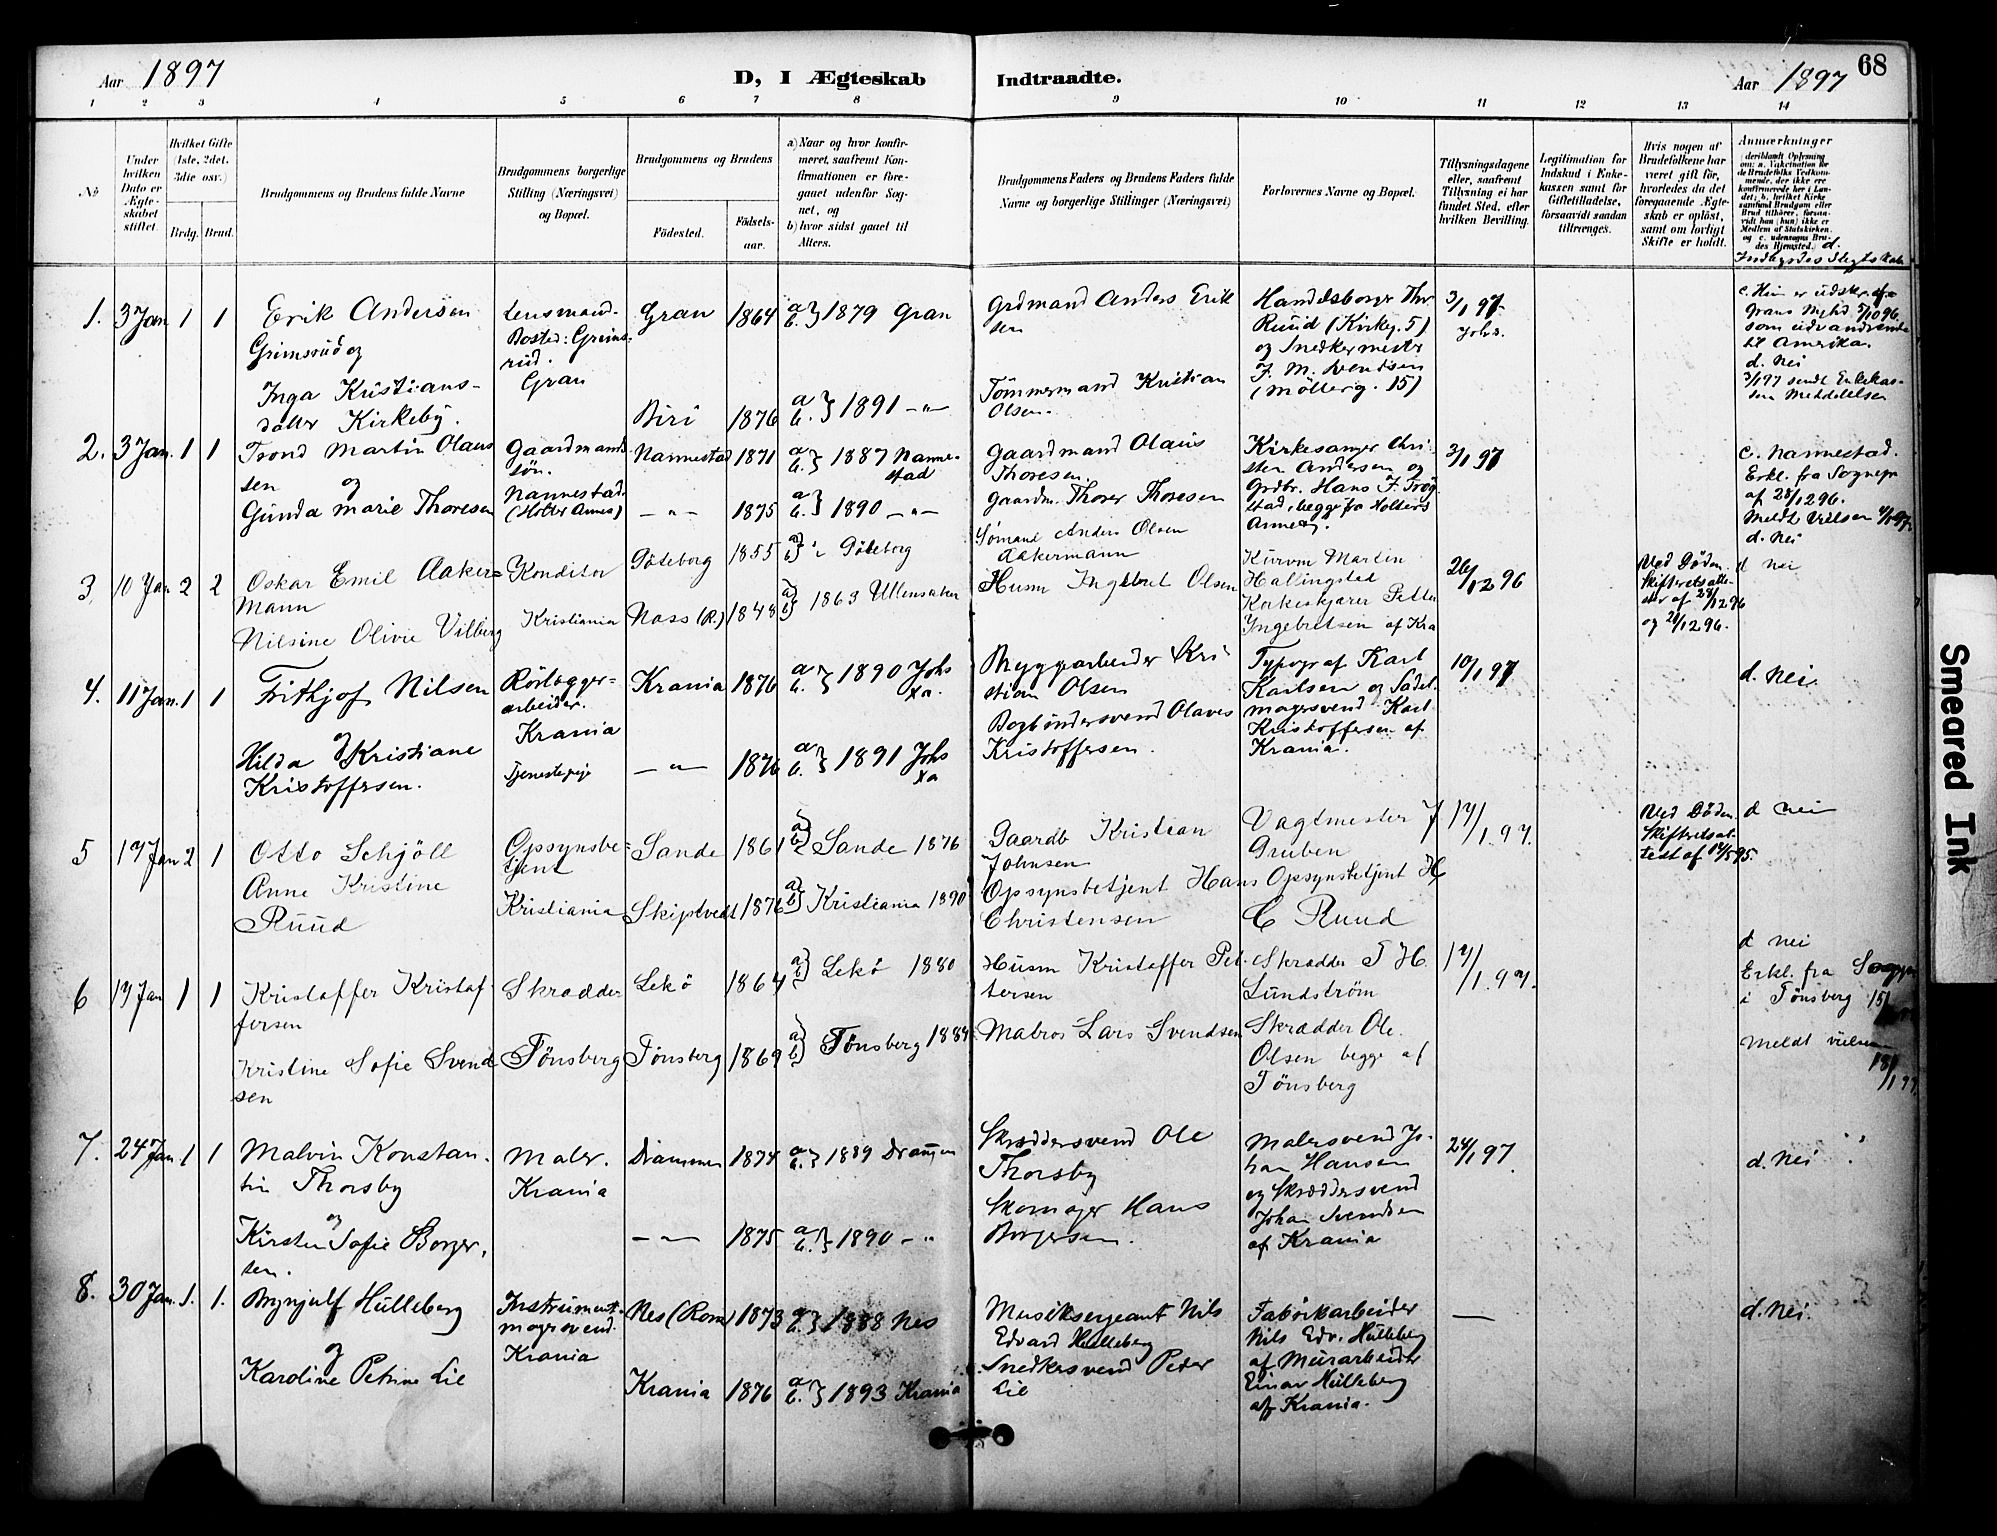 Aar 1897
D, I Ægteskab
Indtraadte.
Aar 1897
68
1 2 3 4 5 6 7 8 9 10 11 12 13 14
No
Under hvilken Dato er Ægteskabet stiftet.
Hvilket Gifte (1ste, 2det, 3die osv.)
Brdg. Brud.
Brudgommens og Brudens fulde Navne
Brudgommens borgerlige Stilling (Næringsvei) og Bopæl.
Brudgommens og Brudens
Födested.
Födsels-aar.
a) Naar og hvor konfirmeret, saafremt Konfirmationen er foregaaet udenfor Sognet, og
b) hvor sidst gaaet til Alters.
Brudgommens Faders og Brudens Faders fulde Navne og borgerlige Stillinger (Næringsvei)
Forlovernes Navne og Bopæl.
Tillysningsdagene eller, saafremt Tillysning ei har fundet Sted, efter hvilken Bevilling.
Legitimation for Indskud i Enkekassen samt for Giftetilladelse, forsaavidt saadan tiltrænges.
Hvis nogen af Brudefolkene har været gift för, hvorledes da det foregaaende Ægteskab er oplöst, samt om lovligt Skifte er holdt.
Anmærkninger
(deriblandt Oplysning om: a. Vakcination for de Brudefolks Vedkommende, der ikke ere konfirmerede her i Landet; b. hvilket Kirkesamfund Brudgom eller Brud tilhörer, forsaavidt han (hun) ikke er Medlem af Statskirken, og c. udensogns Brudes Hjemsted.) d.
1. 3 Jan 1 1
Erik Andersen
Grimsrud og
Inga Kristians-
datter Kirkeby.
Lensmand.
Bosted: Grims-
rud.
Gran
Gran 1864 a b } 1879 Gran
Biri 1876 a b } 1891 -"-
Grdmand Anders Erik
sen
Tömmermand Kristian
Olsen.
Handelsborger Thr
Ruud (Kirkeg. 5)
og Snedkermester
F. M. Svendsen
(Möllerg. 15)
3/1 97
Johs.
som udvandrende
til Amerika.
d. Nei
2. 3 Jan. 1 1
Trond Martin Olaus
sen
og
Gunda Marie Thoresen
Gaardmands
sön.
Nannestad.
(Holter Annex)
Nannestad 1871 a b } 1887 Nanne-
stad
-"- 1875 a b } 1890 -"-
Gaardmand Olaus
Thoresen.
Gaardm. Thorer Thoresen
Kirkesanger Chri-
sten Andersen og
Grdbr. Hans F. Trög
stad, begge fra Holters
Annex.
3/1 97
c. Nannestad.
Erkl. fra Sognepr
af 28/12 96.
Meldt Vielsen 4/1 97.
d. Nei
3. 10 Jan 2 2
Oskar Emil Aaker=
mann
Nilsine Olivie Vilberg
Konditor
Kristiania
Göteborg 1855 a b } " Göteborg
Næss (R.) 1848 a b } 1863 Ullensaker
Sømand Anders Olsen
Aakermann
Husm Ingebret Olsen
Kurvm Martin
Hallingstad
Kirkeskjærer Petter
Yngebretsen af Kra
26/12 96
Ved Døden.
Skifteretsatte-
ster af 28/12 96
og 28/12 96.
d nei
4. 11 Jan. 1 1
Frithjof Nilsen
og
Hilda Kristiane
Kristoffersen.
Rörlægger=
arbeider.
Krania
Tjenestepige
Krania 1876 a b } 1890 Johs
Ka.
-"- 1876 a b } 1891 Johs
Ka
Bryggearbeider Kri
stian Olsen
Bogbindersvend Olaves
Kristoffersen.
Typogr af Karl
Karlsen og Sadel-
magersvend Karl
Kristoffersen af
Krania.
10/1 97
d. Nei.
5 17 Jan 2 1
Otto Schjöll
Anne Kristine
Ruud
Opsynsbe=
tjent
Kristiania
Sande 1861 a b } Sande 1876
Skiptvedt 1876 a b } Kristiania 1890
Gaardb Kristian
Johnsen
Opsynsbetjent Hans
Christensen
Vagtmester J
Gruben
Opsynsbetjent H
C Ruud
17/1. 97.
Ved Døden.
Skifteretsat-
test af 14/5 95.
d nei
6 17 Jan 1 1
Kristoffer Kristof-
fersen
Kristine Sofie Svend
sen
Skrædder
Tönsberg
Lekö 1864 a b } Lekö 1880
Tönsberg 1869 a b } Tönsberg 1884
Husm Kristoffer Pet-
tersen
Matros Lars Svendsen
Skrædder T H
Lundström
Skrædder Ole
Olsen begge af
Tönsberg
17/1. 97.
d nei
Erkl. fra
i Tönsberg 15/
Meldt vielsen
18/1 97
7. 24 Jan 1 1
Malvin Konstan-
tin Thorsby
og
Kirsten Sofie Borger-
sen.
Maler.
Krania
Drammen 1874 a b } 1889 Drammen
-"- 1875 a b } 1890 -"-
Skræddersvend Ole
Thorsby
Skomager Hans
Borgersen.
Malersvend Jo-
han Hansen
og Skræddersvend
Johan Svendsen
af Krania
24/1 97.
d. Nei
8. 30 Jan. 1. 1.
Brynjulf Hulleberg
og
Karoline Petrine Lie
Instrument-
magersvend.
Krania
Nes (Rom) 1873 a b } 1888 Nes
Krania 1876 a b } 1893 Krania
Musiksergeant Nils
Edvard Hulleberg
Snedkersvend Peder
Lie
Fabrikarbeider
Nils Edv. Hulleberg
af Murarbeider
Einar Hulleberg
af Krania.
—
d. Nei.
Smeared Ink